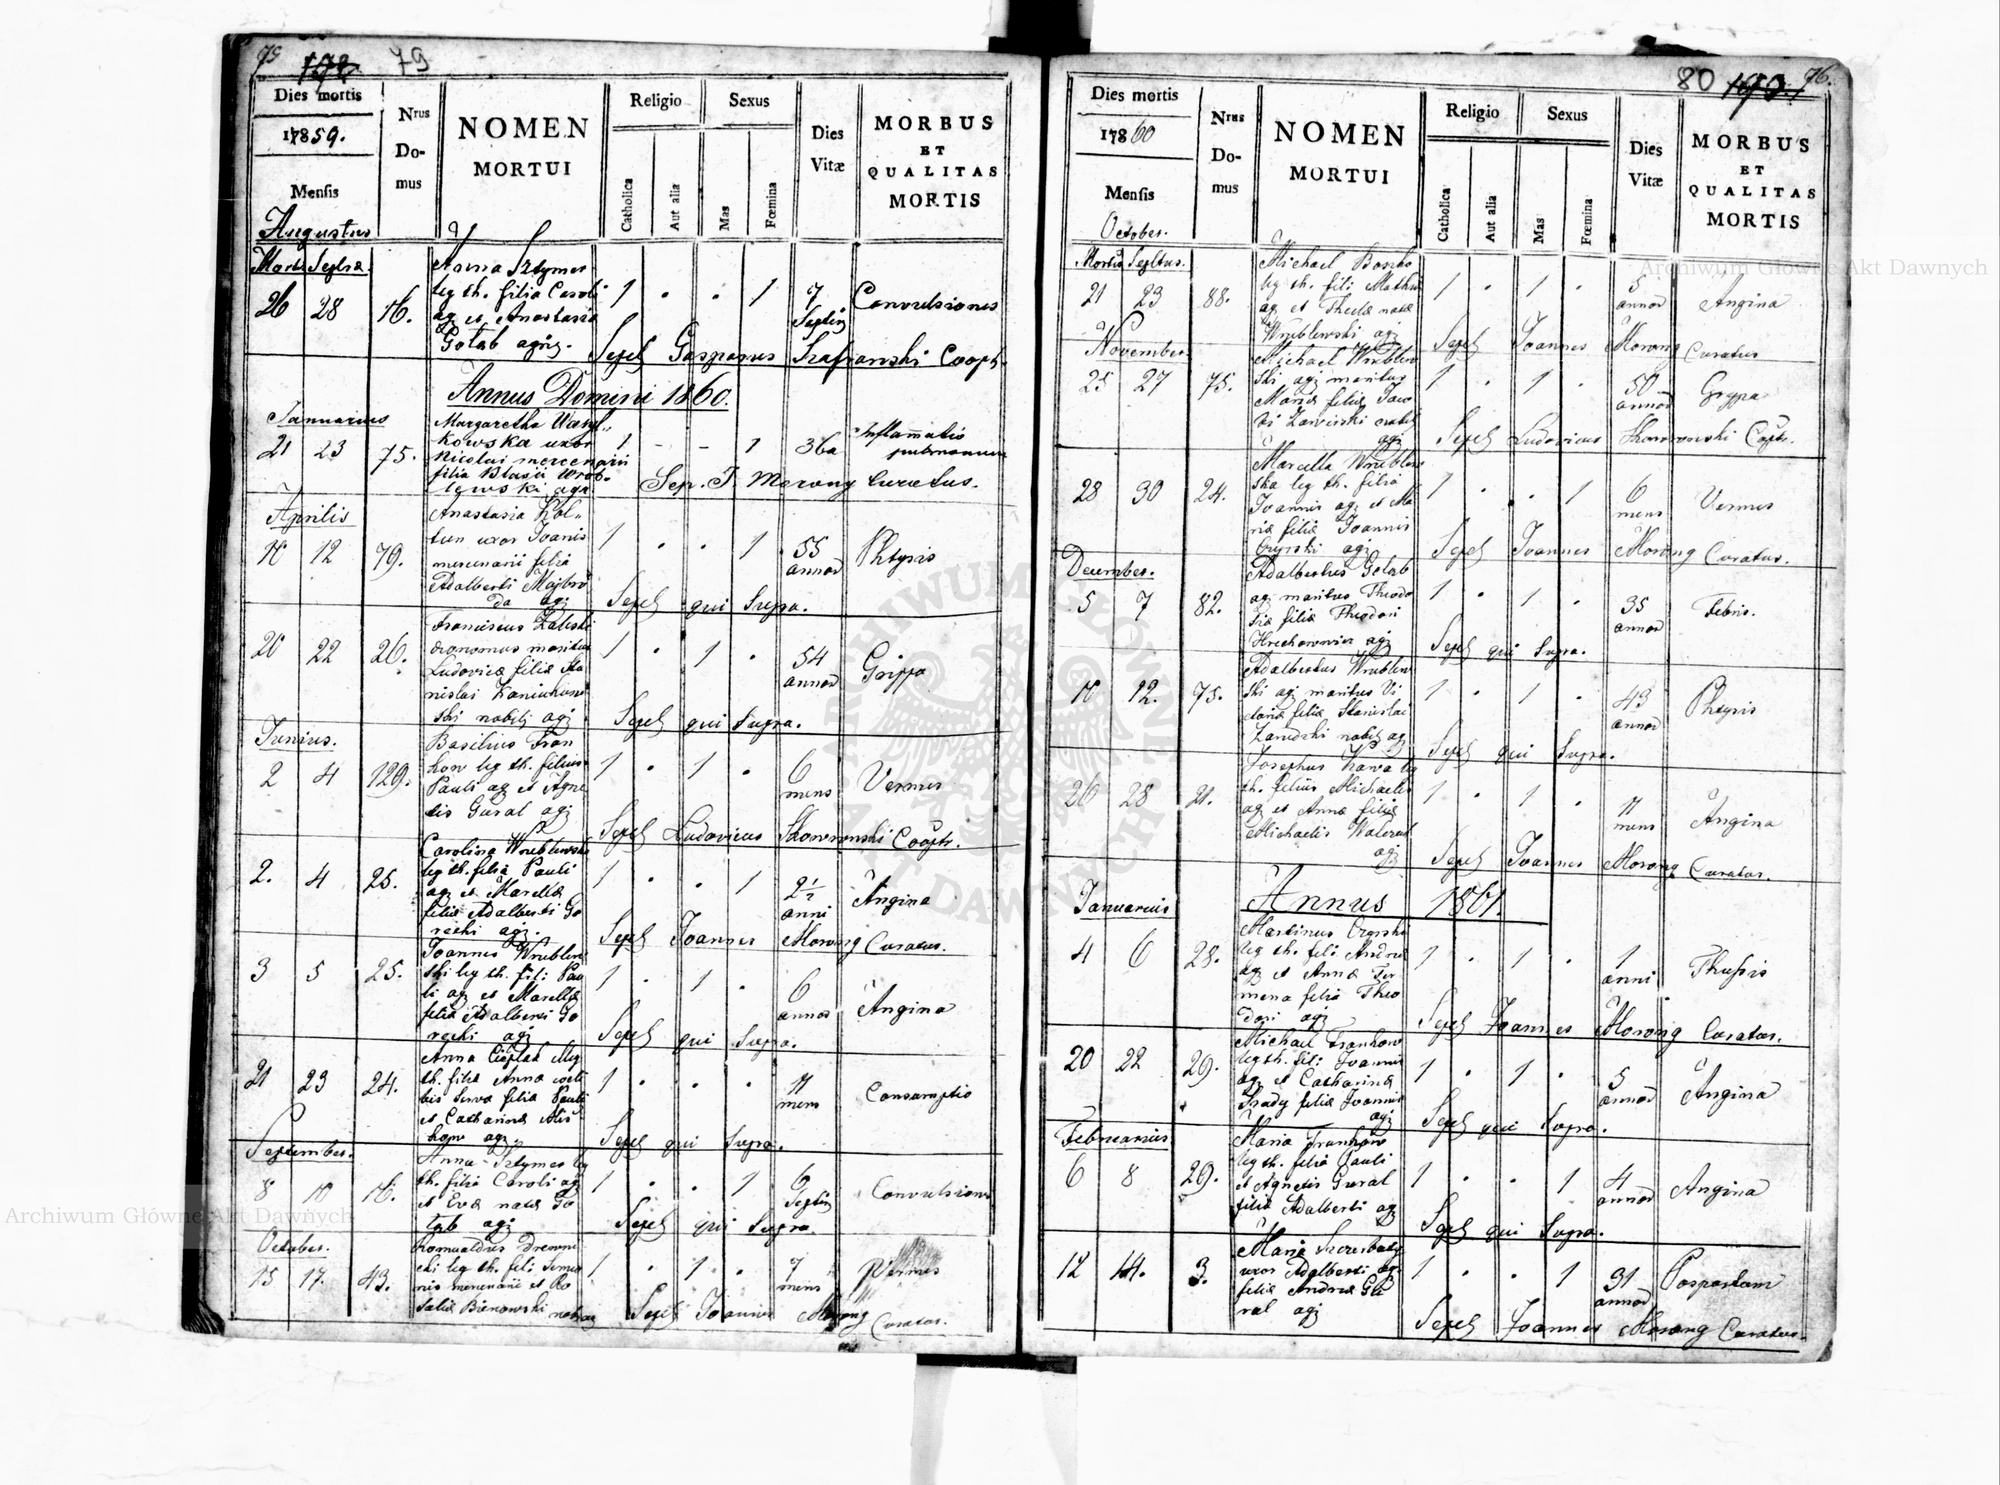 75 198 79
Dies mortis
17859.
Mensis
Augustus
Nrus
Do-
mus
NOMEN
MORTUI
Religio
Catholica
Aut alia
Sexus
Mas
Fœmina
Dies
Vitæ
MORBUS
ET
QUALITAS
MORTIS
Mort. Septæ.
26 28 16.
Anna Sztymer
leg th. filia Caroli
ag et Anastasia
Gołąb agric.
1 . . 1 7
Septim
Convulsiones
Sepel Gasparus Szafranski Coopt.
Annus Domini 1860.
Januarius
21 23 75.
Margaretha
kowska uxor
Nicolai mercenarii
filia Blasii Wrob-
lewski agr.
1 - - 1 36a
Inflamatio
pulmonum
Sep. J. Morong Curatus.
Aprilis
10 12 79.
Anastasia Kol-
tun uxor Joanis
mercenarii filia
Adalberti
da agr
1 . . 1 55
annor
Phtysis
Sepel qui Supra.
20 22 26.
Franciscus Zaleski
œconomus maritus
Ludovica filia Sta
nislai
ski nobilis agr
1 . 1 . 54
annor
Grippa
Sepel qui Supra.
Junius.
2 4 129.
Basilius Fran
kow leg th. filius
Pauli ag et Agne
tis Gural agr
1 . 1 . 6
mens
Vermes
Sepel Ludovicus Skowronski Cooptr.
2. 4 25.
Carolina Wrublewska
leg th. filia Pauli
ag et Marella
filia Adalberti Go
recki agr.
1 . . 1 2½
anni
Angina
Sepel Joannes Morong Curatus.
3 5 25.
Joannes Wrublew
ski leg th. fil: Pau
li ag et Marella
filia Adalberti Go
recki agr
1 . 1 . 6
annor
Angina
Sepel qui Supra.
21 23 24.
Anna Cieplak illeg
th. filia Anna coeli
bis serva filia Pauli
et Catharina Mis
kow agr.
1 . . . 11
mens
Consumptio
Sepel qui Supra.
September.
8 10 16.
Anna Sztymer leg
th. filia Caroli ag
et Eva nata Go
łąb agr
1 . . 1 6
Septim
Convulsiones
Sepel qui Supra.
October.
15 17. 43.
Romualdus Drewni
cki leg th. fil: Simeo
nis mercenarii et Ro
salia Bienowski
1 . 1 . 7
mens
Vermes
Sepel Joannes Morong Curatus.
80 199. 76.
Dies mortis
17860
Mensis
October.
Nrus
Do-
mus
NOMEN
MORTUI
Religio
Catholica
Aut alia
Sexus
Mas
Fœmina
Dies
Vitæ
MORBUS
ET
QUALITAS
MORTIS
Mortis Sepltus.
21 23 88.
Michael Bosko
leg th. fil: Mathei
ag et Thecla nata
Wrublewski agr
1 . 1 . 5
annor
Angina
Sepel Joannes Morong Curatus
November.
25 27 75.
Michael Wrublew
ski agr maritus
Maria filia
1 . 1 . 50
annor
Grypa
Sepel Ludovicus Skowronski Cooptr.
28 30 24.
Marcella Wrublew
ska leg th. filia
Joannis ag et Ma
ria filia Joannis
Czyrski agr
1 . . 1 6
mens
Vermes
Sepel Joannes Morong Curatus.
December.
5 7 82.
Adalbertus Gołąb
ag maritus Theodo
sia filia Theodori
Hrechorowicz agr
1 . 1 . 35
annor
Febris.
Sepel qui Supra.
10 12. 75.
Adalbertus Wrublew
ski agr maritus Vi
ctoria filia Stanislai
Zarudzki nobilis ag
1 . 1 . 43
annor
Phtysis
Sepel qui Supra.
26 28 21.
Josephus Kawa leg
th. filius Michaelis
ag et Anna filia
Michaelis Walczak
agr
1 . 1 . 11
mens
Angina
Sepel Joannes Morong Curatus.
Annus 1861.
Januarius
4 6 28.
Martinus Czyrski
leg th. fil: Andrea
ag et Anna
mena filia Theo
dori agr
1 . 1 . 1
anni
Sepel Joannes Morong Curatus.
20 22 29.
Michael Frankow
leg th. fil: Joannis
ag et Catharina
filia Joannis
agr
1 . 1 . 5
annor
Angina
Sepel qui Supra.
Februarius
6 8 29.
Maria Frankow
leg th. filia Pauli
et Agnetis Gural
filia Adalberti agr
1 . . 1 4
annor
Angina
Sepel qui Supra.
12 14. 3.
Maria
uxor Adalberti ag.
filia Andrea Gu
ral agr
1 . . 1 31
annor
Postpartum
Sepel Joannes Morong Curatus.
Archiwum Główne Akt Dawnych
Archiwum Główne Akt Dawnych
ARCHIWUM GŁÓWNE AKT DAWNYCH